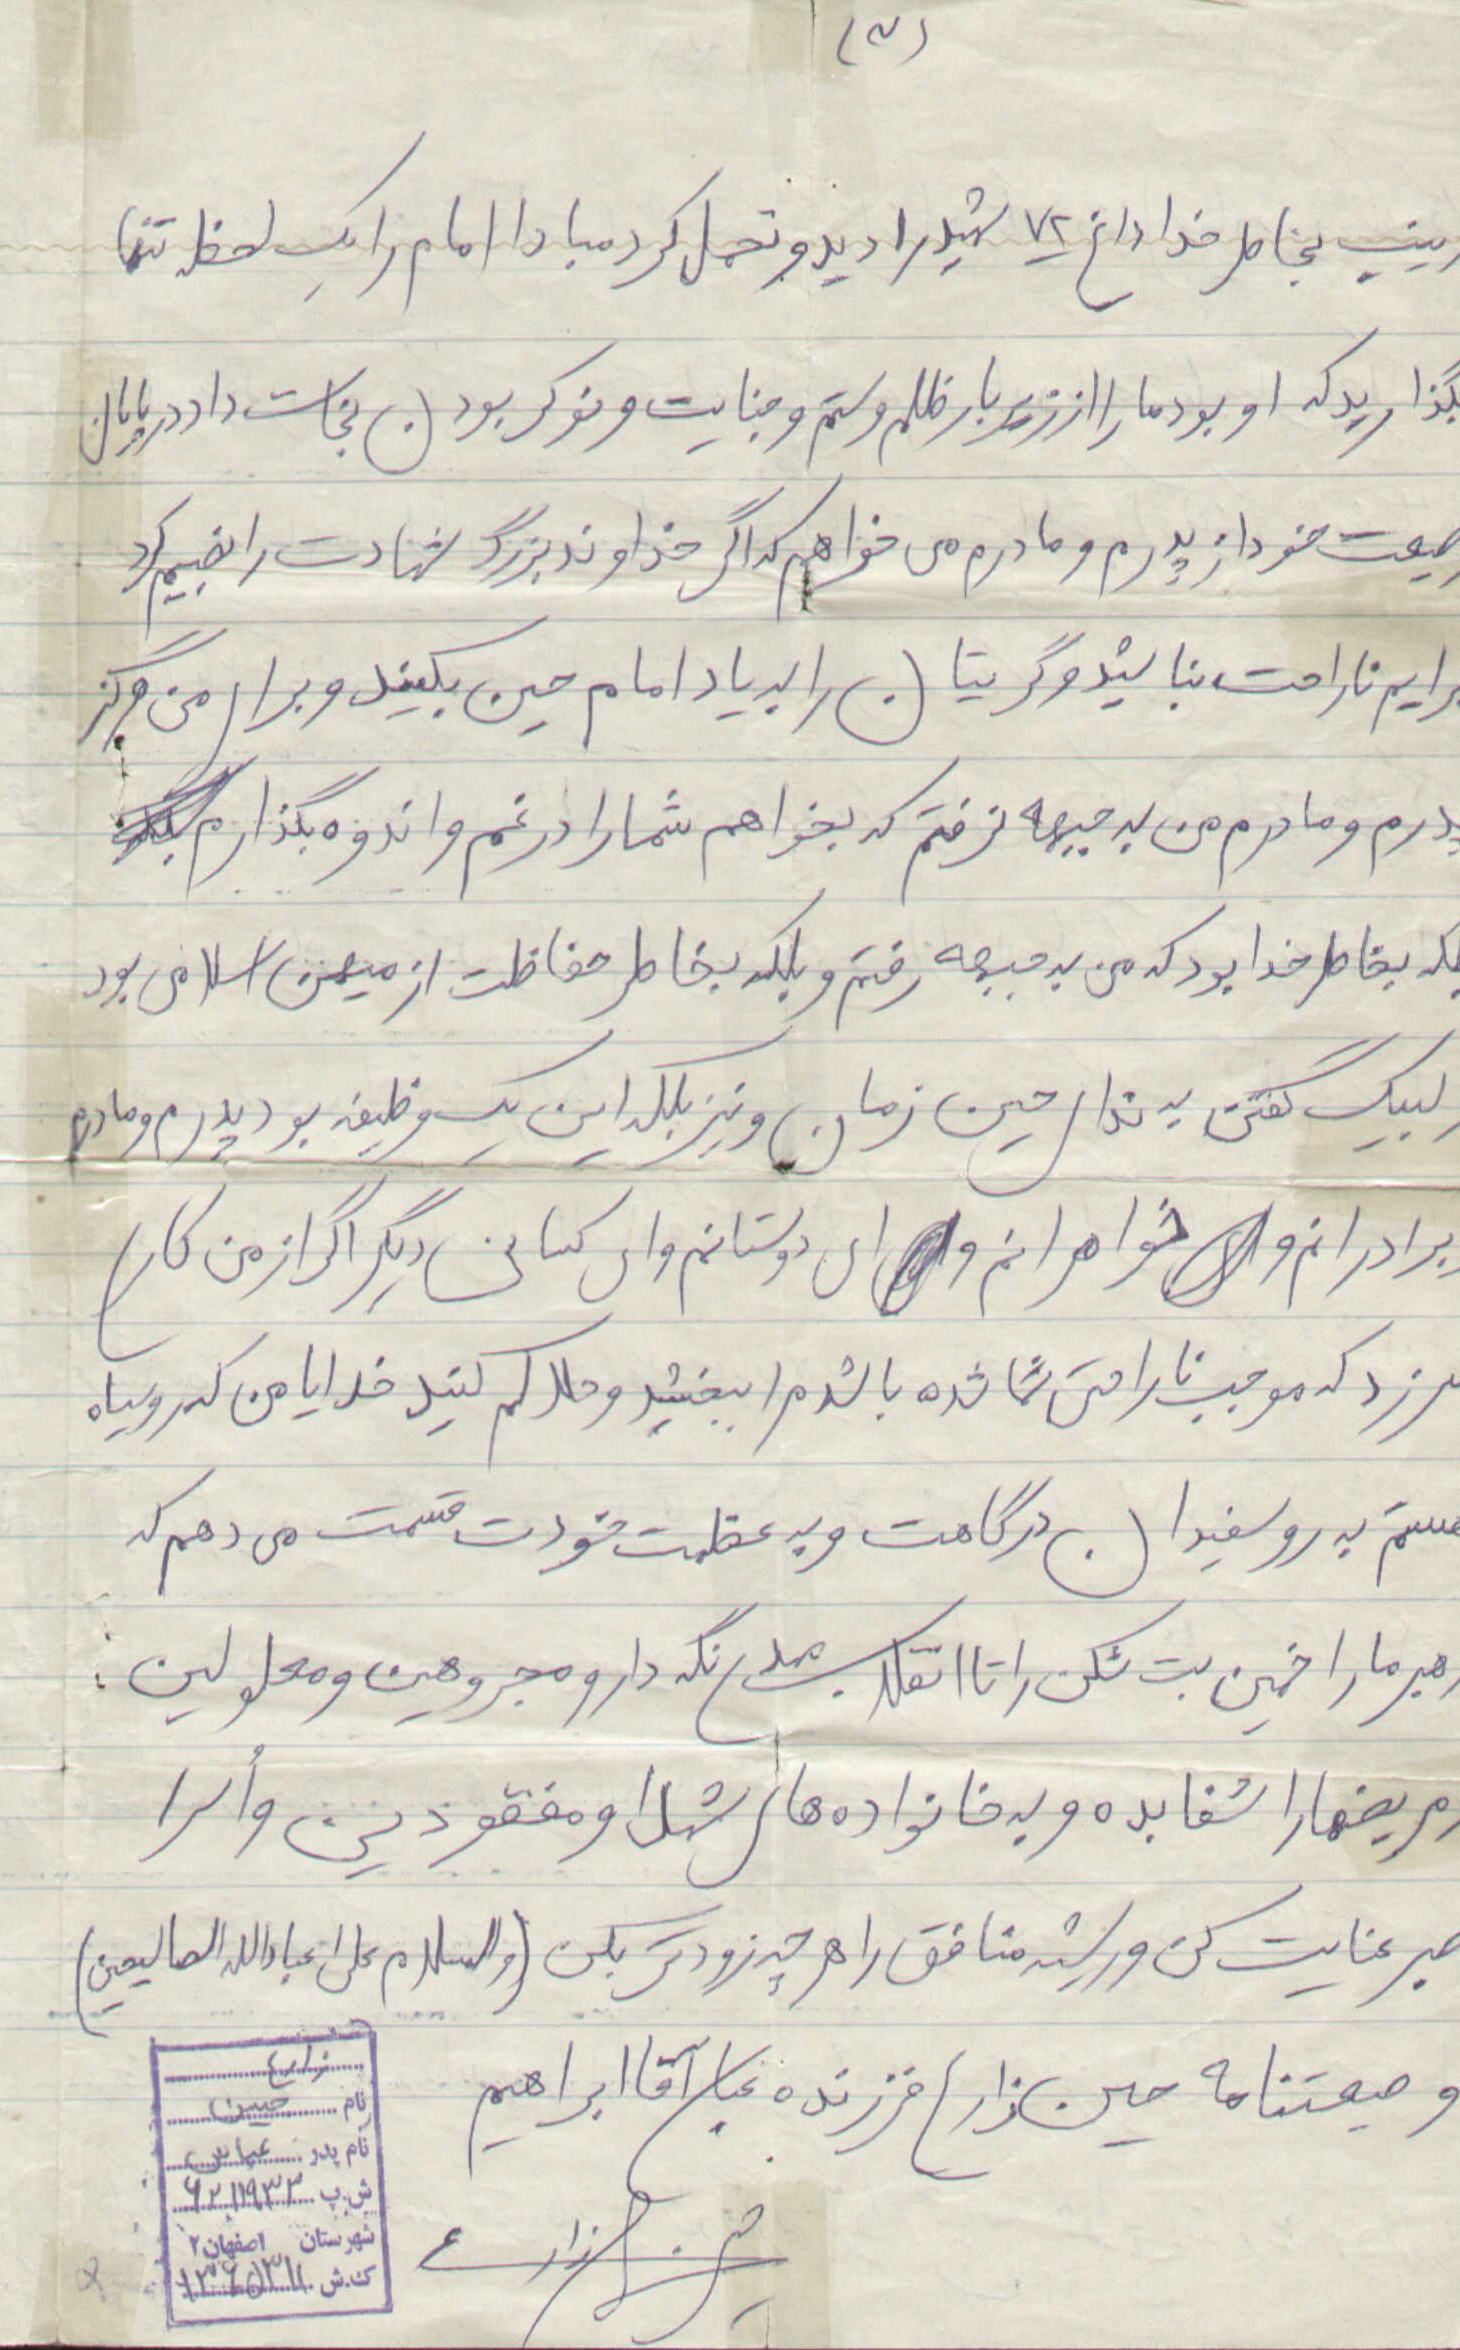 (۳)
زینب بخاطر خدا داغ ۷۲ شهید را دید و تحمل کرد مبادا امام را یک لحظه تنها
بگذارید که او بود ما را از زیر بار ظلم و ستم و جنایت و نوکر بودن نجات داد در پایان
وصیعت خود از پدرم و مادرم می خواهم که اگر خداوند بزرگ شهادت را نصیبم کرد
برایم ناراحت نباشید و گریتان را به یاد امام حسین بکنید و برای من هرگز
پدرم و مادرم من به جبهه نرفتم که بخواهم شما را در غم و اندوه بگذارم
بلکه بخاطر خدا بود که من به جبهه رفتم و بلکه بخاطر حفاظت از میهن اسلامی بود
و لبیک گفتن به ندای حسین زمان و نیز بلکه این یک وظیفه بود پدرم و مادرم
برادرانم و خواهرانم و ای دوستانم و ای کسانی دیگر اگر از من کاری
سر زد که موجب ناراحتی شما شده باشد مرا ببخشید و حلالم کنید خدایا من که روسیاه
هستم به روسفیدان درگاهت و به عظمت خودت قسمت می دهم که
رهبر ما را خمینی بت شکن را تا انقلاب مهدی نگه دار و مجروهین و معلولین
و مریضها را شفا بده و به خانواده های شهدا و مفقودین و أسرا
صبر عنایت کن و ریشه منافق را هر چه زودتر بکن (والسلام علی اعبادالله الصالیحین)
وصیعتنامه حسین زارع فرزنده عباس آقا ابراهیم
زارع
نام حسین
نام پدر عباس
ش.پ ۶۲۱۱۹۳۳
شهرستان اصفهان ۲
کد.ش ۱۳۶۵۳۱۱